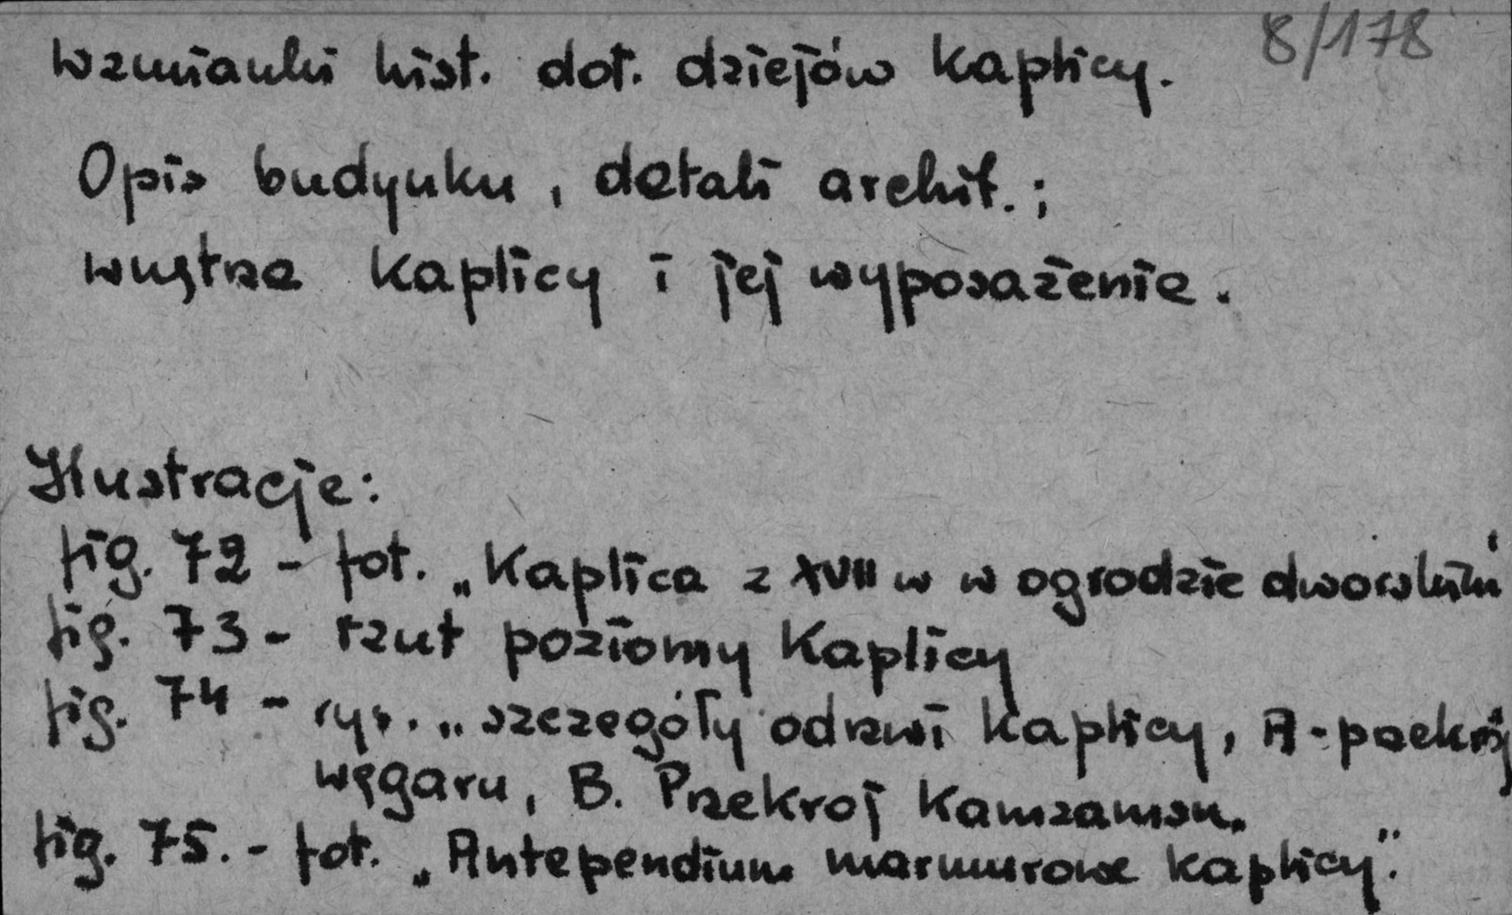 8/178
wzmianki hist. dot. dziejów kaplicy.
Opis budynku, detali archit.;
wnętrze kaplicy i jej wyposażenie.
Ilustracje:
fig. 72 - fot. „Kaplica z XVII w w ogrodzie dworskim"
fig. 73 - rzut poziomy kaplicy
fig. 74 - rys. „szczegóły odrzwi kaplicy, A - przekrój
węgaru, B. Przekroj
fig. 75. - fot. „Antependium marmurowe kaplicy".